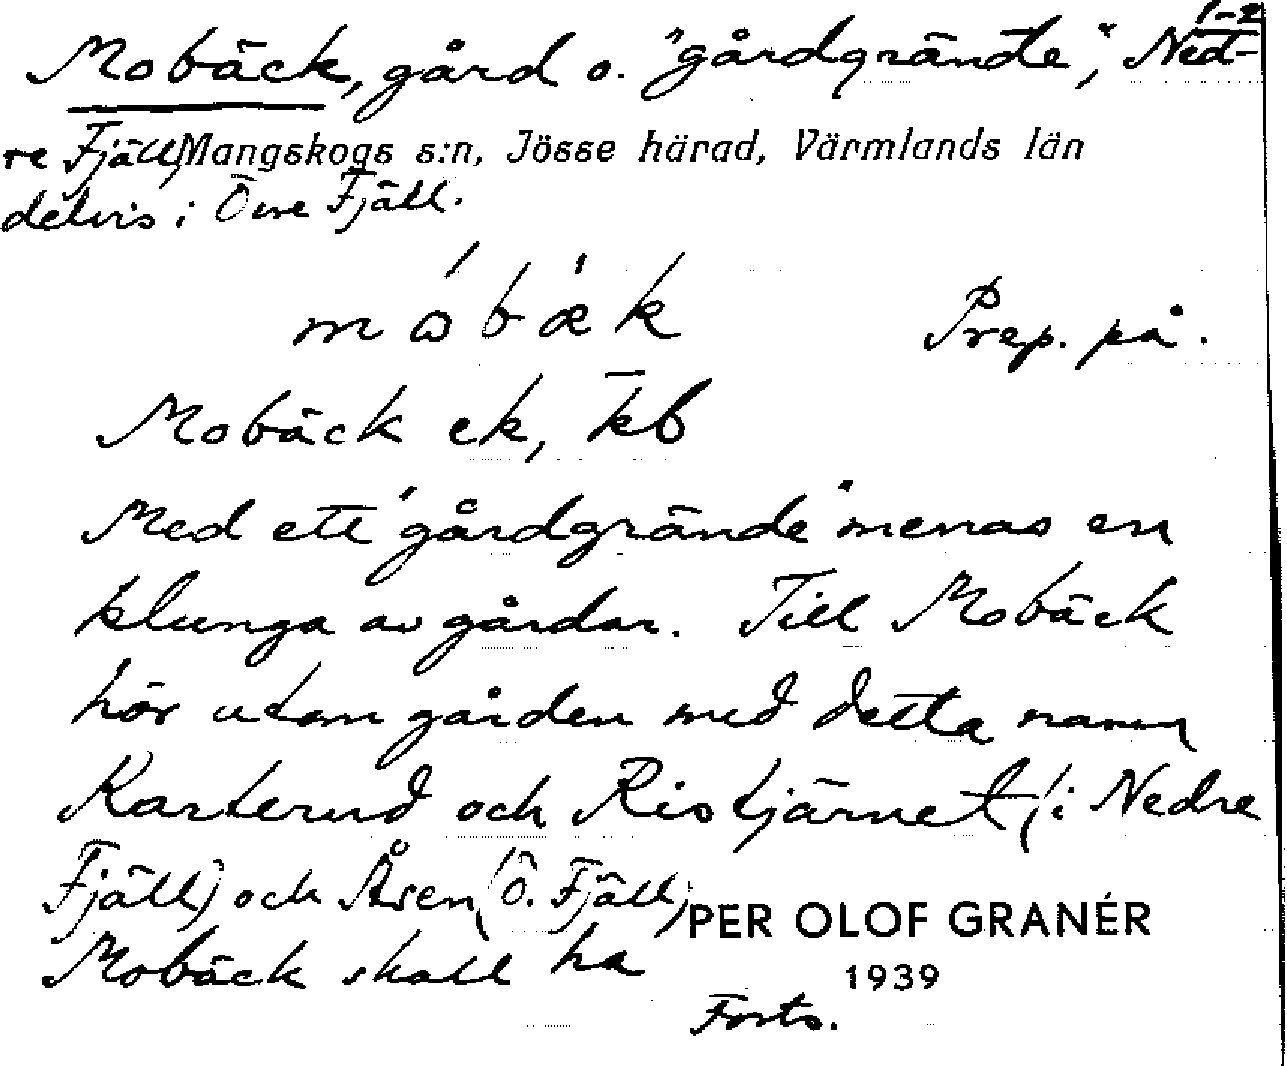 1-2
Mobäck, gård o. "gårdgrände", Ned-
re Fjäll, Mangskogs s:n, Jösse härad, Värmlands län
delvis i Övre Fjäll.
Prep. på.
Mobäck ek, kb
Med ett "gårdgrände" menas en
klunga av gårdar. Till Mobäck
hör utom gården med detta namn
Karterud och Ristjärnet (i Nedre
Fjäll) och Åsen (Ö. Fjäll)
PER OLOF GRANÉR
Mobäck skall ha
1939
Forts.